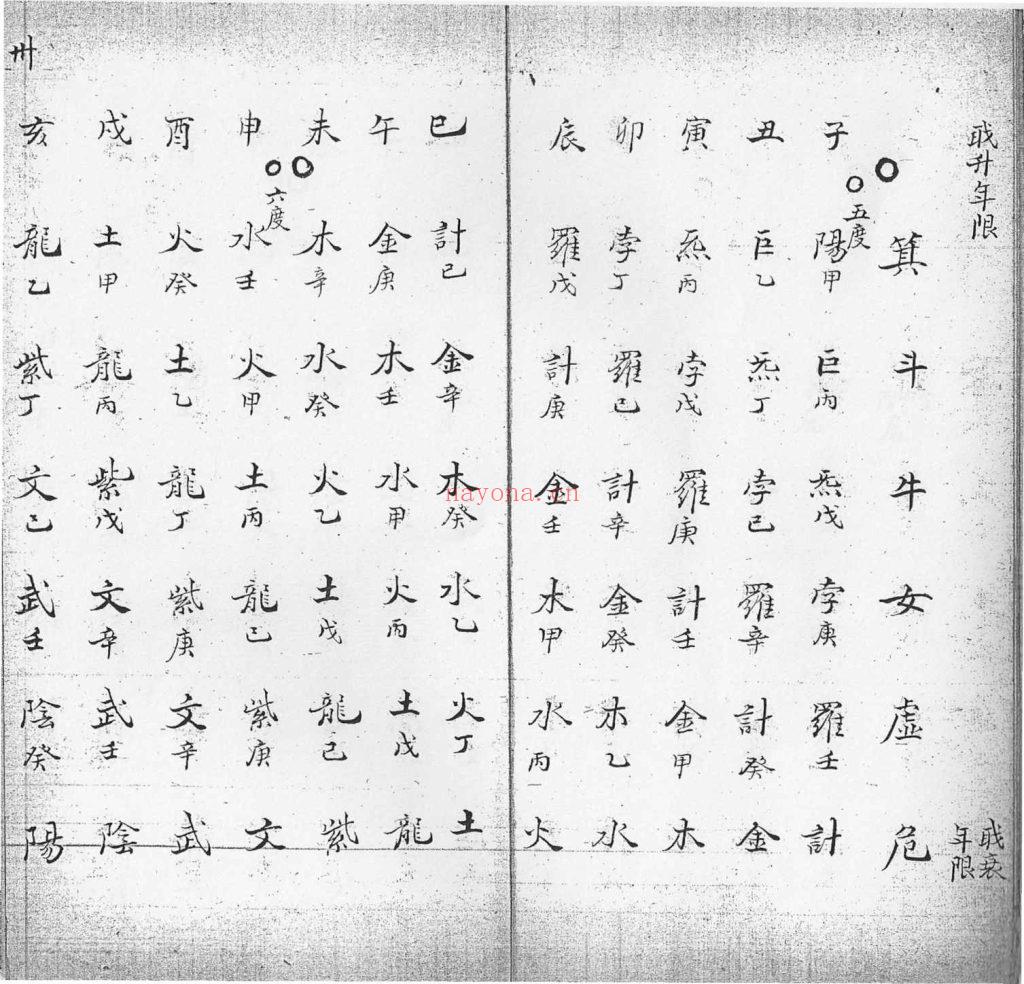 戢升年限
戢衰
年限
箕斗牛女虛危
五度
子陽甲巨丙炁戊孛庚羅壬計
丑巨乙炁丁孛己羅辛計癸金
寅炁丙孛戊羅庚計壬金甲木
卯孛丁羅己計辛金癸木乙水
辰羅戊計庚金壬木甲水丙火
巳計己金辛木癸水乙火丁土
午金庚木壬水甲火丙土戊龍
未木辛水癸火乙土戊龍己紫
六度
申水壬火甲土丙龍己紫庚文
酉火癸土乙龍丁紫庚文辛武
戌土甲龍丙紫戊文辛武壬陰
亥龍乙紫丁文己武壬陰癸陽
卅
nayona.cn